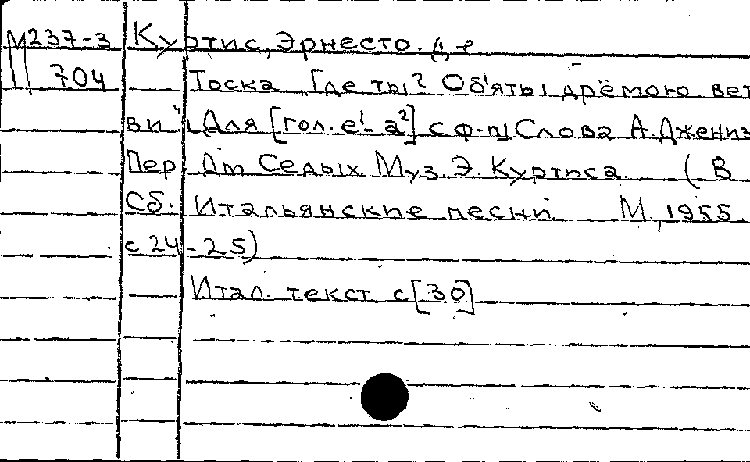 М237-3 Куртис, Эрнесто. Де
704 Тоска Где ты? Объяты дрёмою вет
ви" Для [гол. e¹-a²] с ф-п. Слова А. Джениз
Пер Дм Седых Муз. Э. Куртиса (В
Сб. Итальянские песни М, 1955
с 24-25)
Итал. текст с [30]